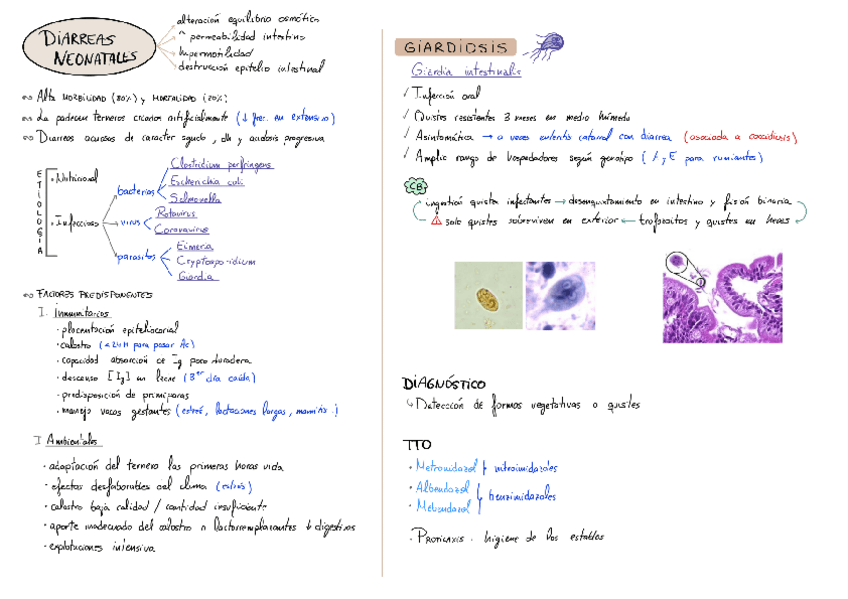 DIARREAS NEONATALES
alteración equilibrio osmótico
^ permeabilidad intestino
hipermotilidad
destrucción epitelio intestinal
Alta MORBILIDAD (80%) y MORTALIDAD (20%)
La padecen terneros criados artificialmente (↓ frec. en extensivo)
Diarreas acuosas de caracter agudo, dh y acidosis progresiva
ETIOLOGIA
· Nutricional
· Infecciosa
bacterias
Clostridium perfringens
Escherichia coli
Salmonella
virus
Rotavirus
Coronavirus
parasitos
Eimeria
Cryptosporidium
Giardia
FACTORES PREDISPONENTES
I. Inmunitarios
· placentación epiteliocorial
· calostro (<24H para pasar Ac)
· capacidad absorción de Ig poco duradera
· descenso [Ig] en leche (3er día caída)
· predisposición de primiparas
· manejo vacas gestantes (estrés, lactaciones largas, mamitis..)
I Ambientales
· adaptación del ternero las primeras horas vida
· efectos desfaborables del clima (estrés)
· calostro baja calidad / cantidad insuficiente
· aporte inadecuado del calostro o lactorremplazantes ↓ digestivos
· explotaciones intensiva
GIARDIOSIS
Giardia intestinalis
/ Infección oral
/ Quistes resistentes 3 meses en medio húmedo
/ Asintomática → a veces enteritis catarral con diarrea (asociada a coccidiosis)
/ Amplio rango de hospedadores según genotipo (A y E para rumiantes)
CB
ingestión quistes infectantes → desenquistamiento en intestino y fisión binaria
solo quistes sobreviven en exterior ← trofozoitos y quistes en heces
DIAGNÓSTICO
↳ Detección de formas vegetativas o quistes
TTO
· Metronidazol } nitroimidazoles
· Albendazol
· Mebendazol
} benzimidazoles
· PROFILAXIS. higiene de los establos